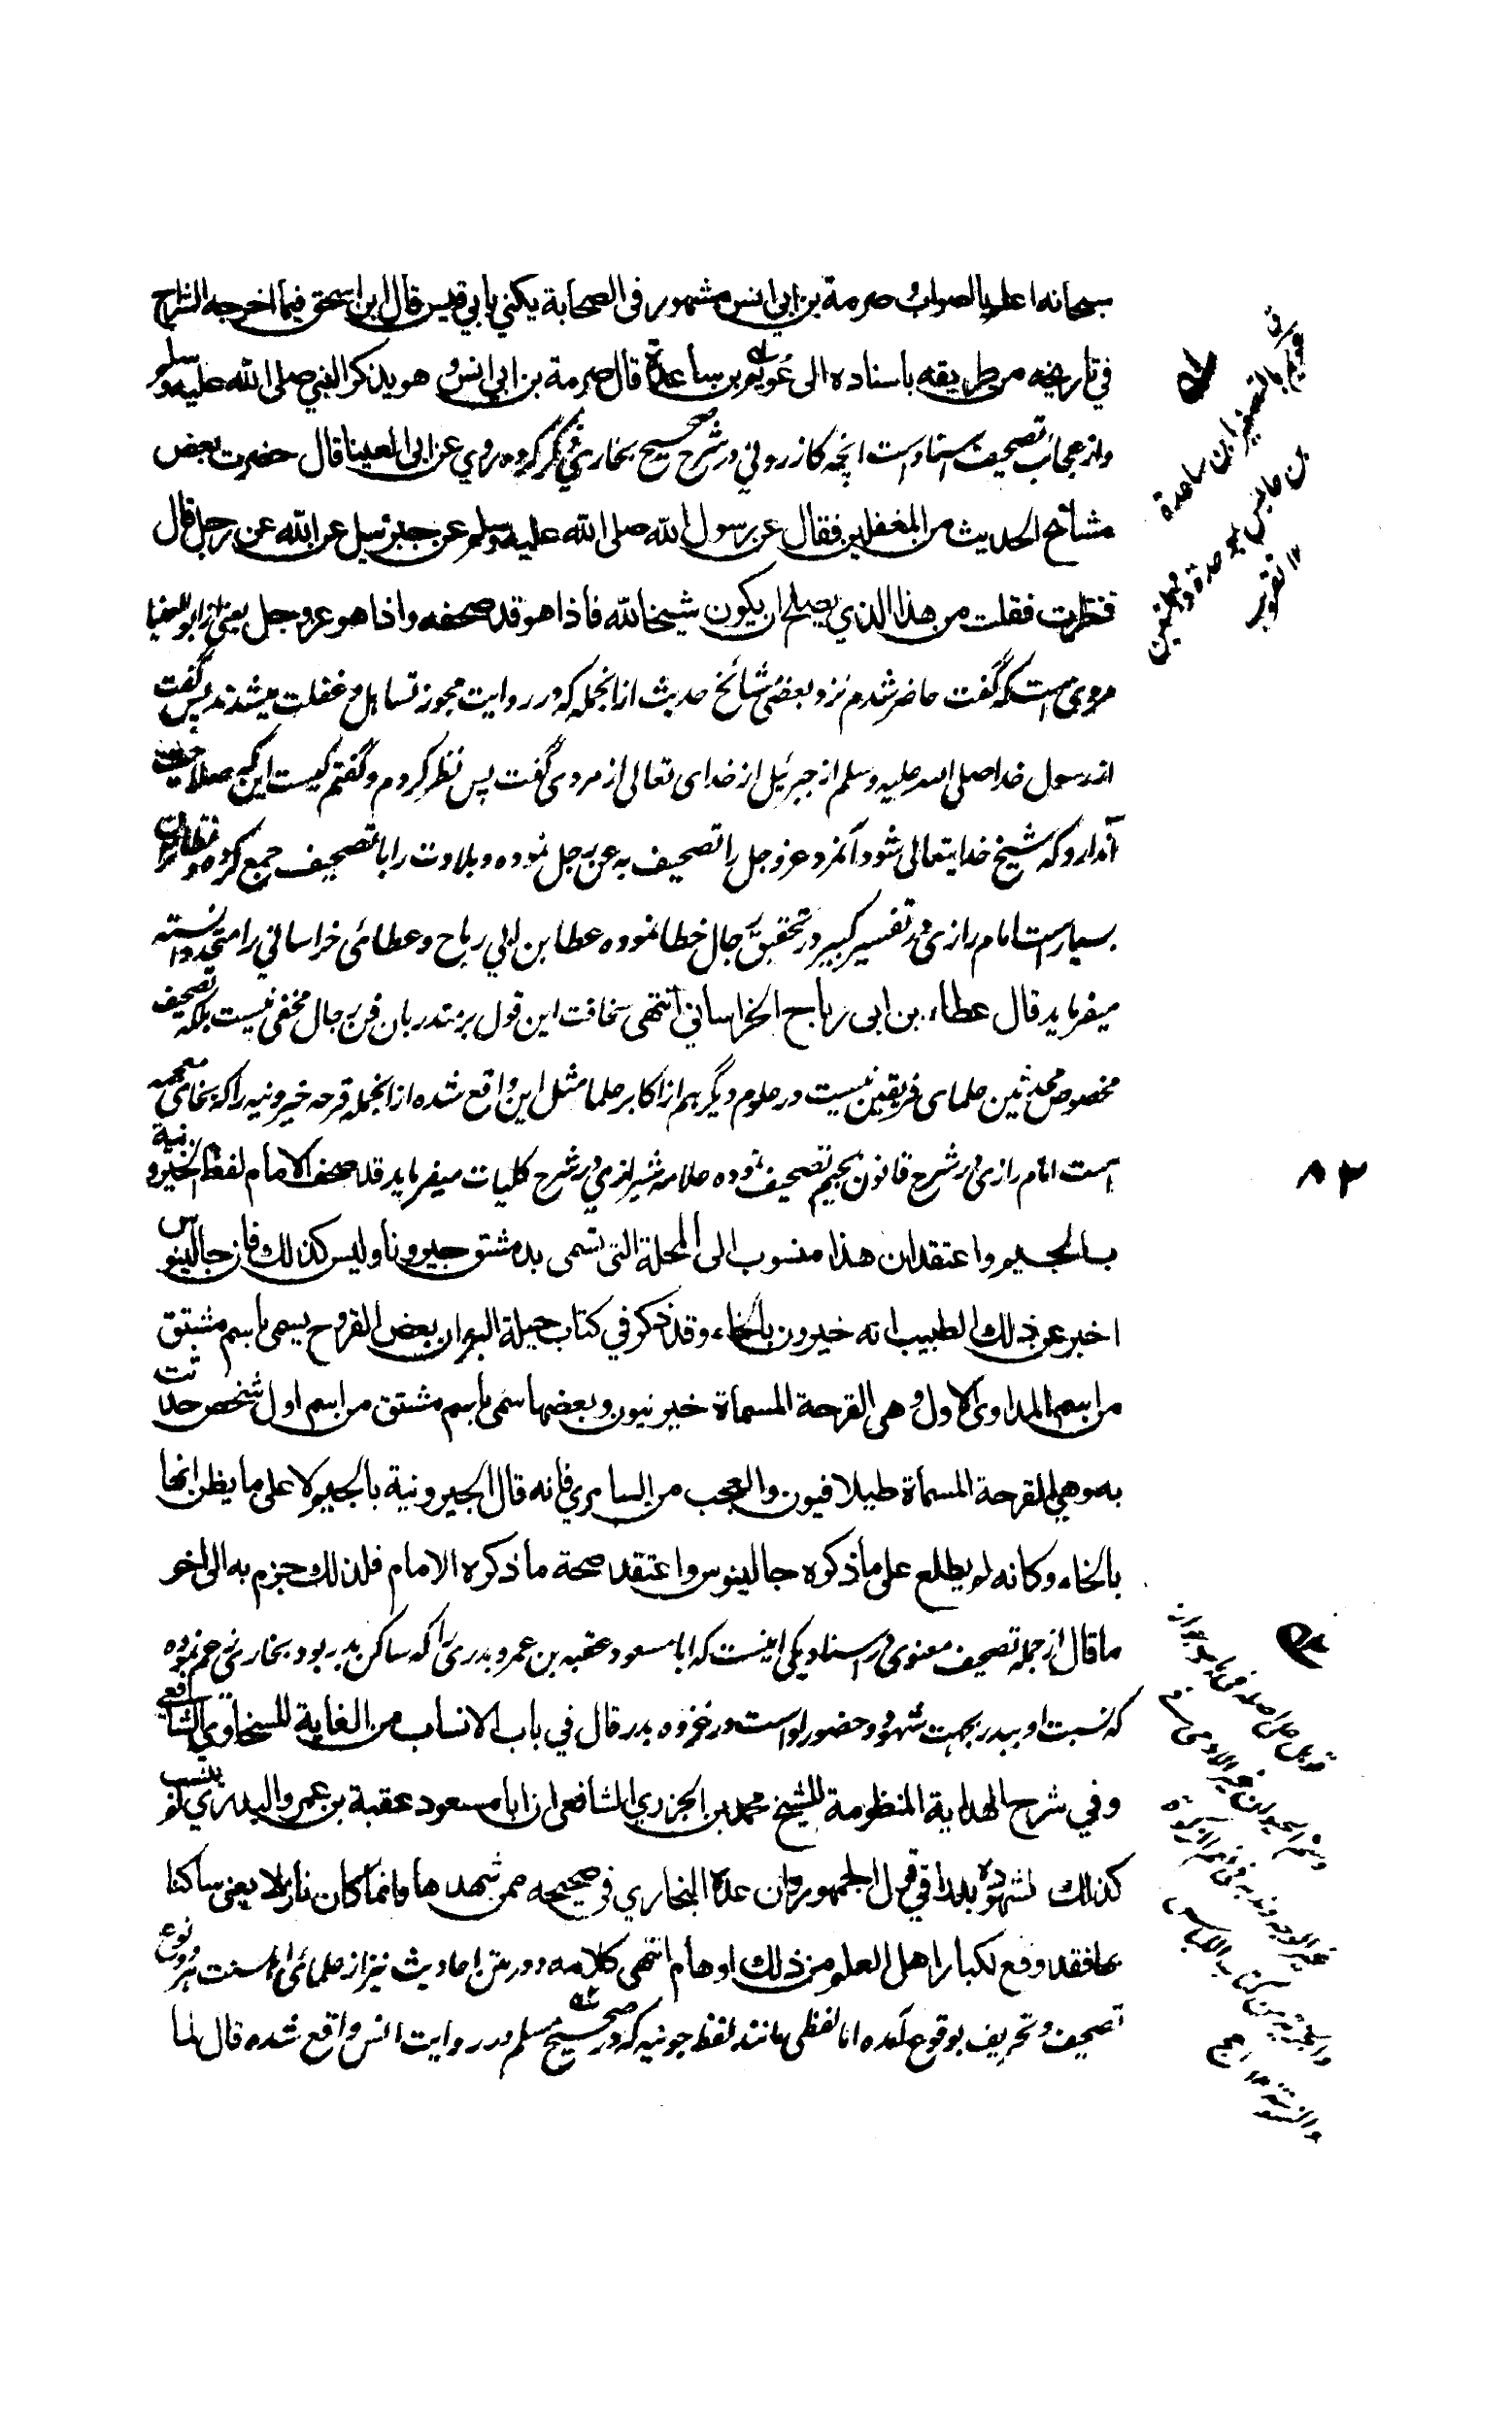 سبحانه اعلم بالصواب و صرمة بن ابي انس مشهور في الصحابة يكنى بابي قيس قال ابن اسحق فيما اخرجه السراج
في تاريخه من طريقه باسناده الى عويم بن ساعدة قال صرمة بن ابي انس و هو يذكر النبي صلى الله عليه وسلم
واز عجائب تصحيف اسناد است انچه كازروني در شرح صحيح بخاري ذكر كرده روي عن ابي العينا قال حضرت بعض
مشائخ الحديث من المغفلين فقال عن رسول الله صلى الله عليه وسلم عن جبرئيل عن الله عن رجل قال
فنظرت فقلت من هذا الذي يصلح ان يكون شيخا لله فاذا هو قد صحفه واذا هو عز وجل يعني از ابو العينا
مروى است كه گفت حاضر شدم نزد بعضى مشائخ حديث از انجمله كه در روايت مجوز تساهل و غفلت ميشدند پس گفت
از رسول خدا صلى الله عليه وسلم از جبرئيل از خداى تعالى از مردى گفت پس نظر كردم و گفتم كيست اين كه صلاحيت
آندارد كه شيخ خدايتعالى شود آنمرد عز وجل را تصحيف به عن رجل نموده و بلادت را با تصحيف جمع كرده و نظائر آن
بسيار است امام رازى در تفسير كبير در تحقيق رجال خطا نموده عطا بن ابي رباح و عطائى خراساني را متحد دانسته
ميفرمايد قال عطاء بن ابى رباح الخراساني انتهى سخافت اين قول بر متدربان فن رجال مخفى نيست بلكه تصحيف
مخصوص محدثين علماى فريقين نيست در علوم ديگر هم از اكابر علما مثل اين واقع شده از انجمله قرحه خيرونيه را كه بخاى معجمه
است امام رازى در شرح قانون بجيم تصحيف نموده علامه شيرازى در شرح كليات ميفرمايد قد صحف الامام لفظ الخيرونية
بالجيم واعتقد ان هذا منسوب الى المحلة التي تسمى بدمشق جيرونا وليس كذلك فان جالينوس
اخبر عن ذلك الطبيب انه خيرون بالخاء وقد ذكر في كتاب حيلة البرء ان بعض القروح يسمى باسم مشتق
من اسم المداوى الاول و هي القرحة المسماة خيرنيون وبعضها سمى باسم مشتق من اسم اول شخص حدثت
به وهي القرحة المسماة طيلافيون والعجب من السامري فانه قال الجيرونية بالجيم لا على ما يظن انها
بالخاء وكانه لم يطلع على ما ذكره جالينوس واعتقد صحة ما ذكره الامام فلذلك جزم به الى اخر
ما قال از جمله تصحيف معنوى در اسناد يكى اينست كه ابا مسعود عقبه بن عمرو بدرى را كه ساكن بدر بود بخارى زعم نموده
كه نسبت او ببدر بجهت شهود و حضور او است در غزوه بدر قال في باب الانساب من الغاية للسخاوي الشافعي
وفي شرح الهداية المنظومة للشيخ محمد بن الجزري الشافعي ان ابا مسعود عقبة بن عمرو البدري لم ينسب
كذلك لشهوده بدرا في قول الجمهور وان عده البخاري في صحيحه ممن شهدها وانما كان نازلا يعني ساكنا
بها فقد وقع لكبار اهل العلم من ذلك اوهام انتهى كلامه و در متن احاديث نيز از علمائى اهلسنت هر دو نوع
تصحيف و تحريف بوقوع آمده اما لفظى مانند لفظ جونيه كه در صحيح مسلم در روايت انس واقع شده قال لما
عويم بالتصغير ابن ساعدة
بن عابس
٨٢